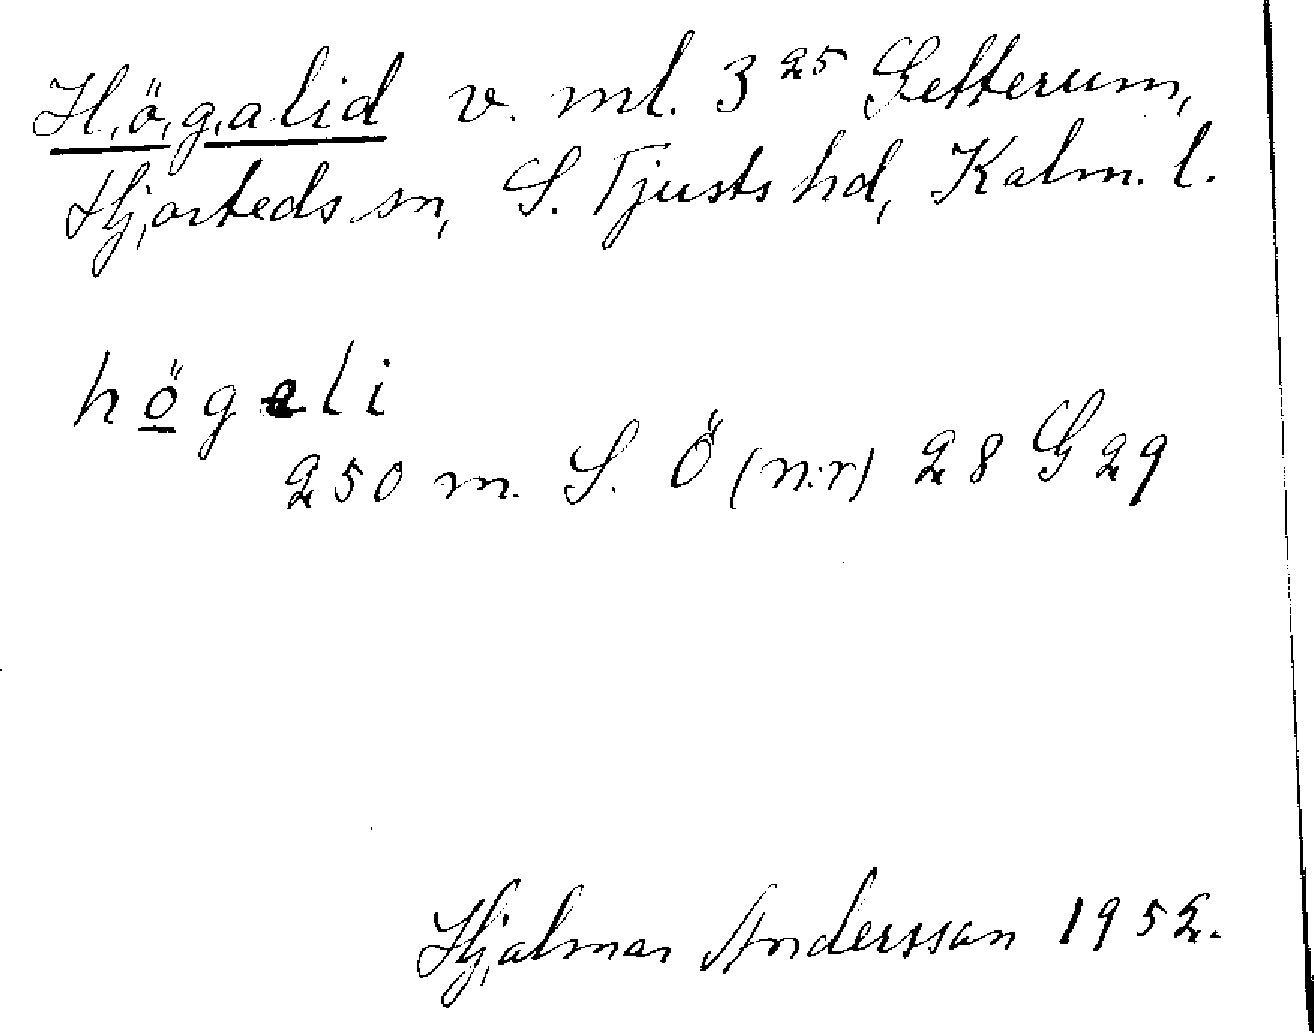 Högalid v. ml. 3²⁵ Gefterum,
Hjorteds sn, S. Tjusts hd, Kalm. l.
högali
250 m. S. Ö (n:r) 28 G 29
Hjalmar Andersson 1952.